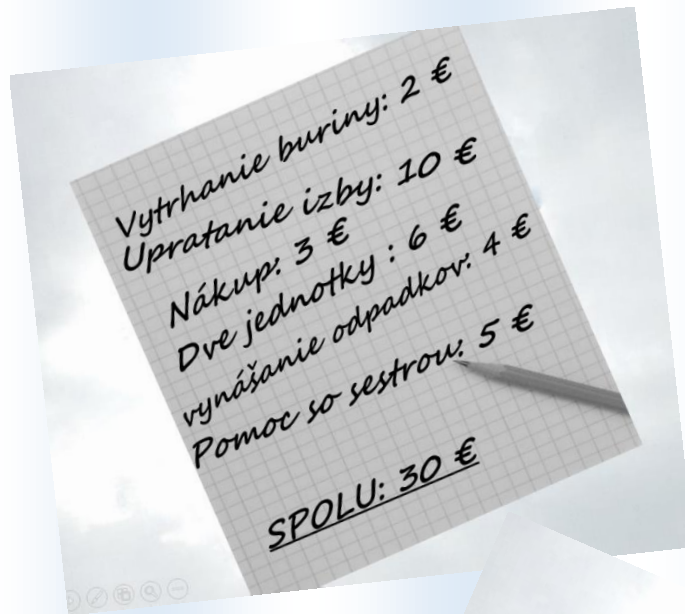 Vytrhanie buriny: 2 €
Upratanie izby: 10 €
Nákup: 3 €
Dve jednotky : 6 €
vynášanie odpadkov: 4 €
Pomoc so sestrou: 5 €
SPOLU: 30 €